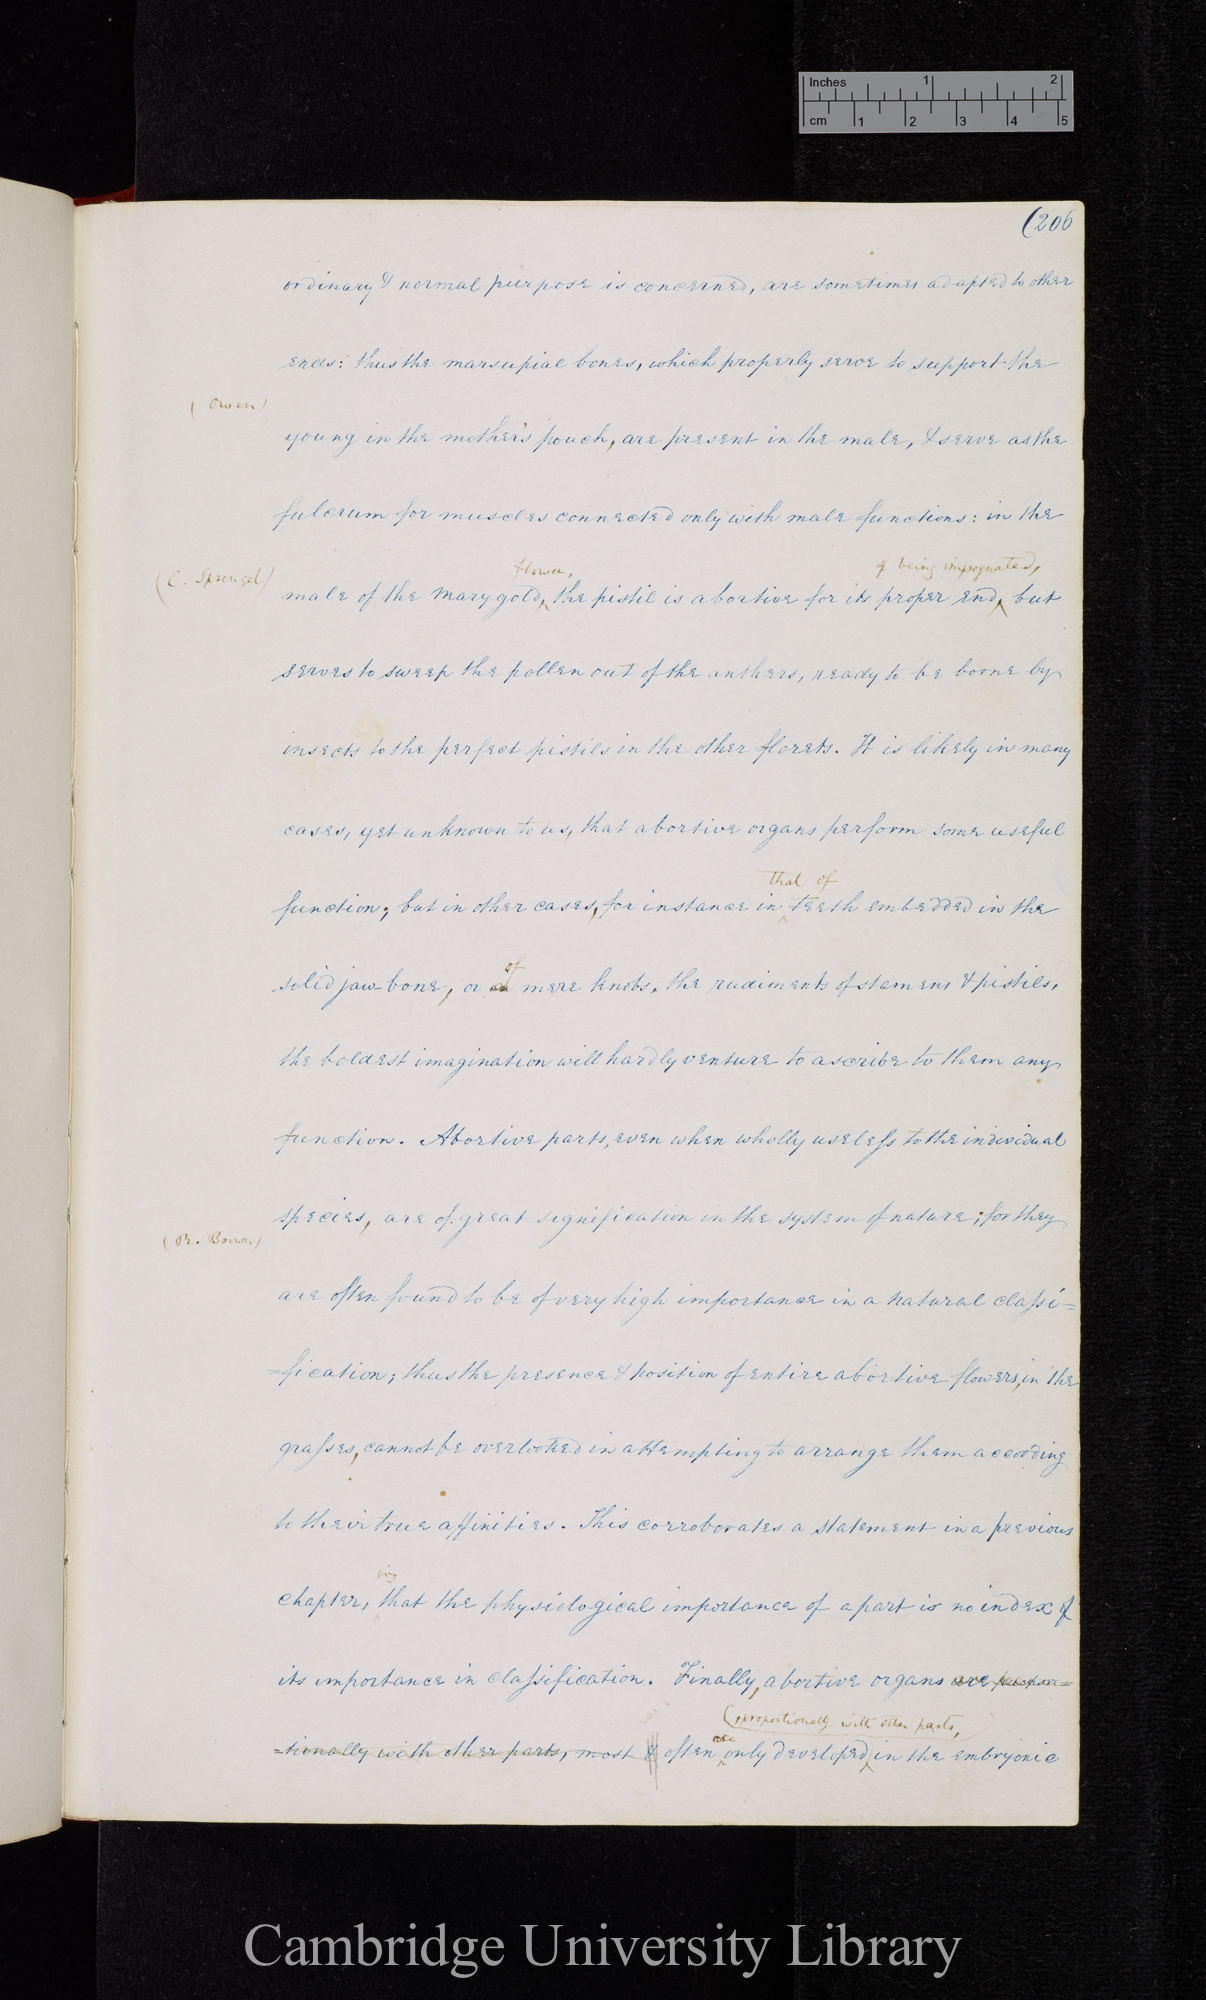 Inches 1 2
cm 1 2 3 4 5
(206
ordinary & normal purpose is concerned, are sometimes adapted to other
ends: thus the marsupial bones, which properly serve to support the
(Owen)
young in the mother's pouch, are present in the male, & serve as the
fulcrum for muscles connected only with male functions: in the
flower,
of being impregnated,
(C. Sprengel)
male of the marygold, the pistil is abortive for its proper end, but
serves to sweep the pollen out of the anthers, ready to be borne by
insects to the perfect pistils in the other florets. It is likely in many
cases, yet unknown to us, that abortive organs perform some useful
that of
function; but in other cases, for instance in teeth embedded in the
of
solid jaw bone, or mere knobs, the rudiments of stamens & pistils,
the boldest imagination will hardly venture to ascribe to them any
function. Abortive parts, even when wholly useless to the individual
species, are of great signification in the system of nature; for they
(R. Brown)
are often found to be of very high importance in a natural classi=
=fication; thus the presence & position of entire abortive flowers, in the
grasses, cannot be overlooked in attempting to arrange them according
to their true affinities. This corroborates a statement in a previous
chapter, that the physiological importance of a part is no index of
its importance in classification. Finally, abortive organs are propor=
(proportionally with other parts,
are
=tionally with other parts, most & often only developed in the embryonic
Cambridge University Library